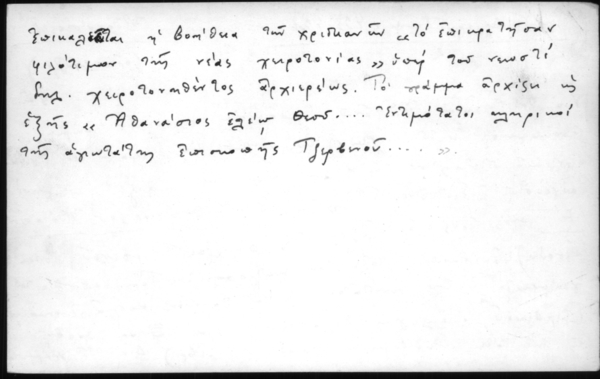 ἐπικαλεῖται ἡ βοήθεια τῶν χριστιανῶν «τὸ ἐπικρατῆσαν
φιλότιμον τῆς νέας χειροτονίας» ὑπὲρ τοῦ νεωστί
δηλ. χειροτονηθέντος ἀρχιερέως. Τὸ γράμμα ἀρχίζει ὡς
ἑξῆς «Ἀθανάσιος ἐλέῳ Θεοῦ.... Ἐντιμότατοι κληρικοί
τῆς ἁγιωτάτης Ἐπισκοπῆς Τζερβενοῦ.... ».